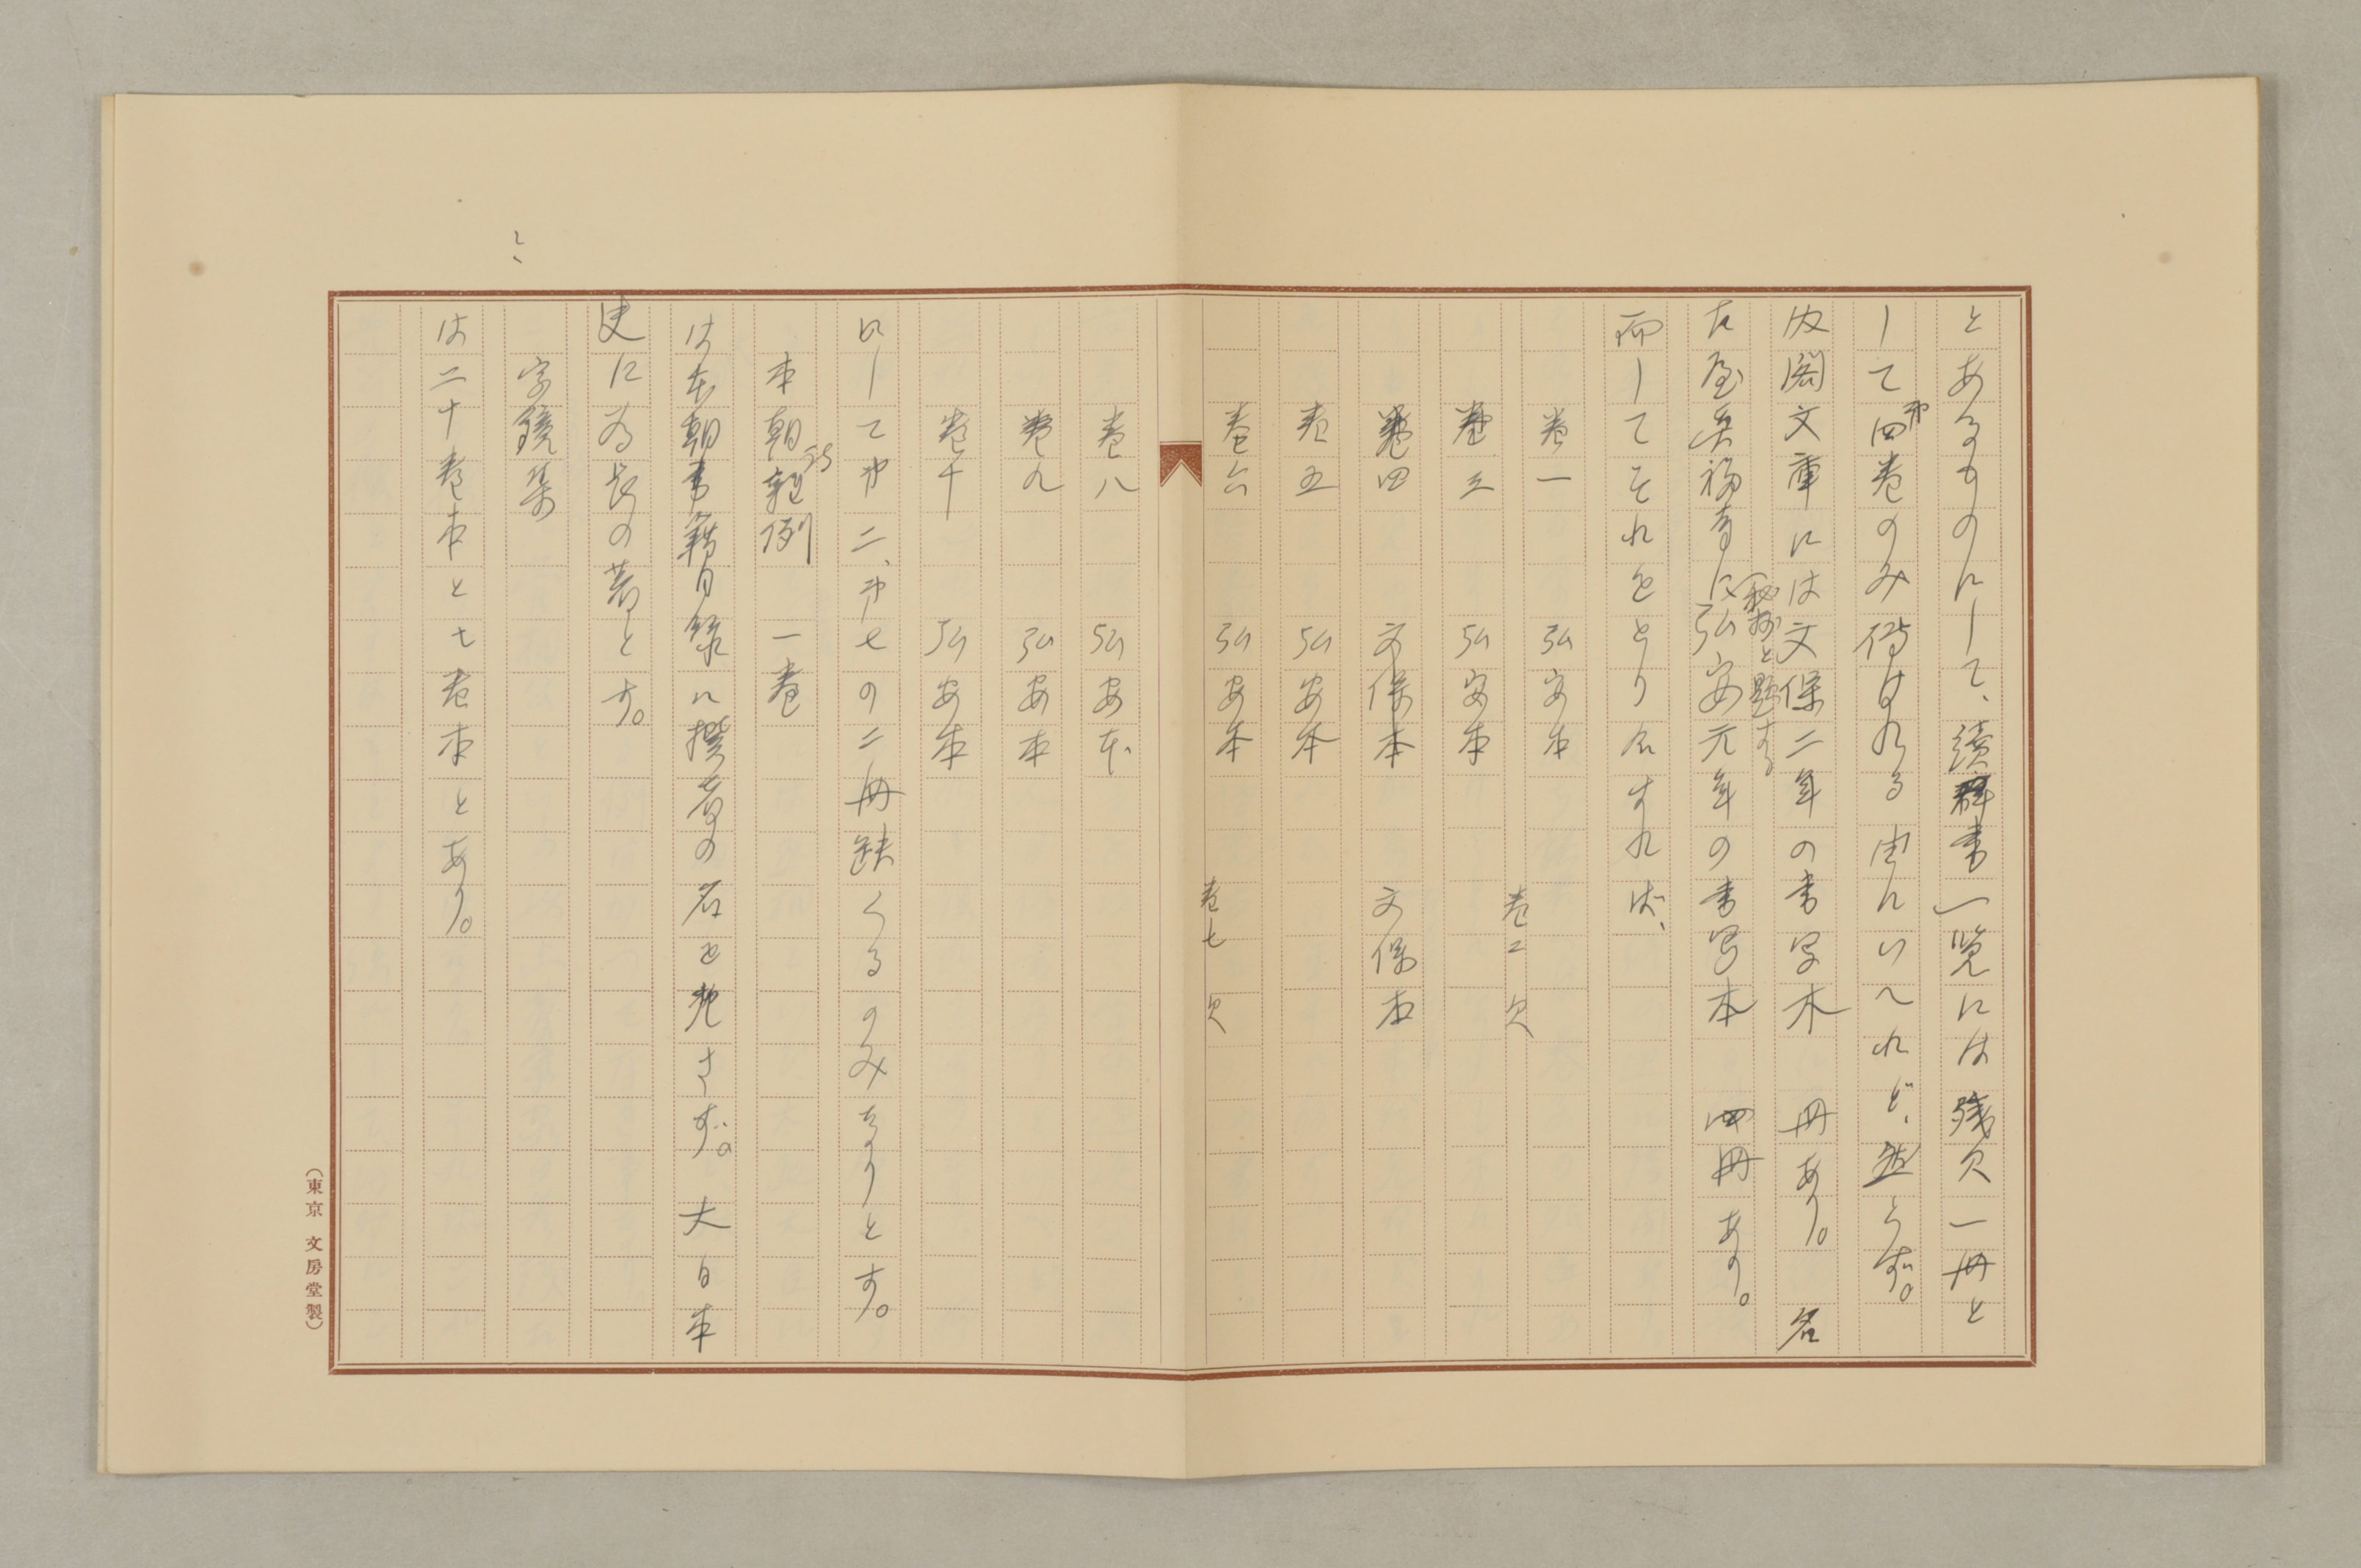 とあるものにして、續群書一覧には残欠一冊と
して第四巻のみ傳はれる由いへれど、然らず。
内閣文庫には文保二年の書写本　冊あり。　名
古屋真福寺に弘安元年の書写本　四冊あり。
秘抄と題する
而してそれをとり合すれば、
巻一　弘安本
巻二　欠
巻三　弘安本
巻四　文保本　文保本
巻五　弘安本
巻六　弘安本
巻七　欠
巻八　弘安本
巻九　弘安本
巻十　弘安本
にして第二、第七の二冊缺くるのみなりとす。
本朝雑例　一巻
は本朝書籍目録に撰者の名を先さず。大日本
史に為長の著とす。
字鏡集
は二十巻本と七巻本とあり。
（東京 文房堂製）